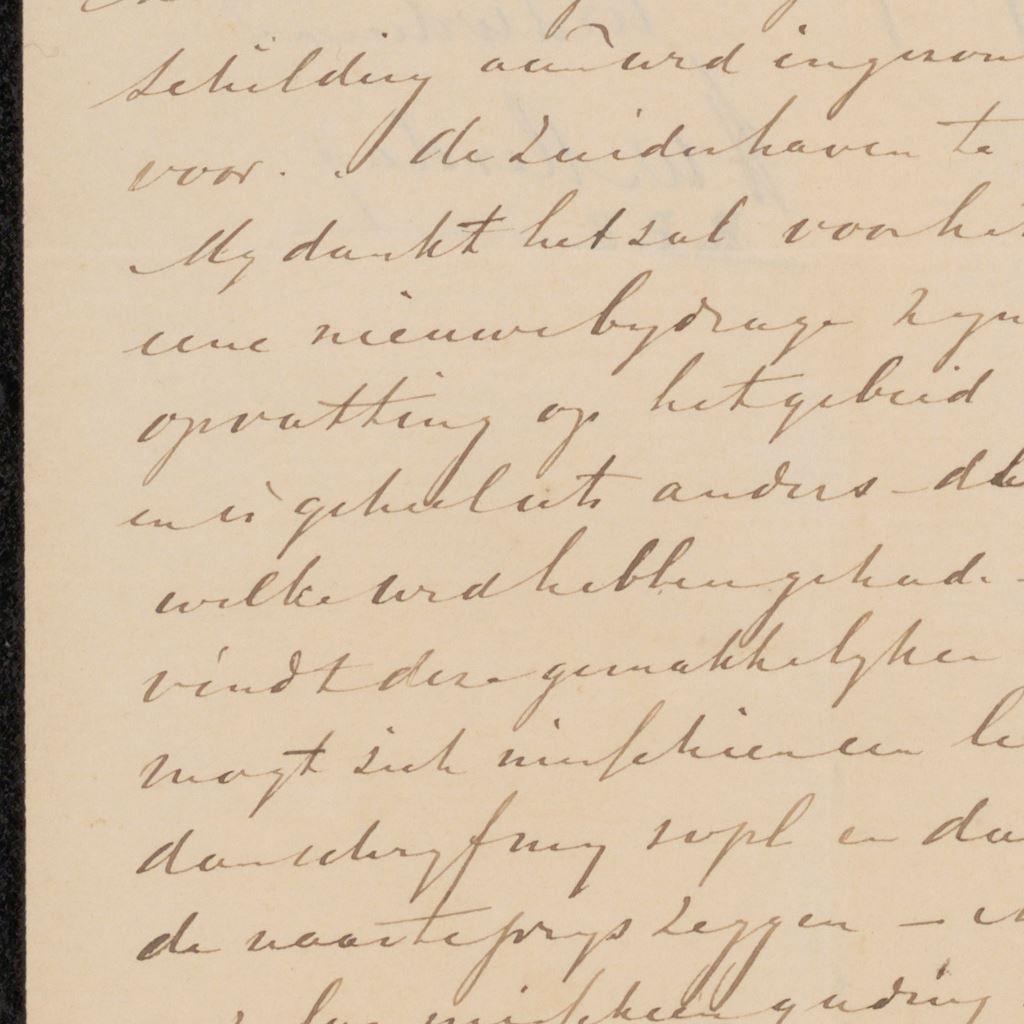 schildery aan urd ingezon
voor. . de Zuiderhaven te
My dunkt het zal voor het
eene nieuwe bydrage zyn
opvatting op het gebied
en is geheel iets anders - d
welke urd hebben gehad.
vindt deze gemakkelyker
mogt zich misschien een
dan schryf my svpl en da
de naaste prys zeggen -
misschien